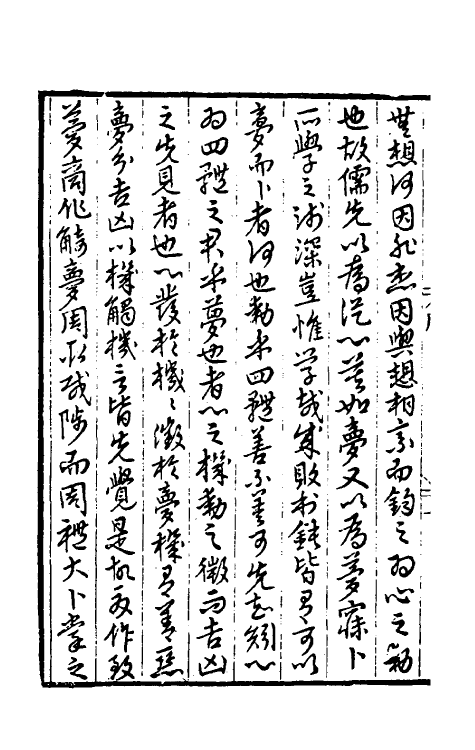 無想何因非想因與想相而鈞之為心之動
也故儒先以為從心莫如夢又以為夢寐卜
所學之淺深豈惟學哉成敗利鈍皆有可以
夢而卜者何也動乎四體善不善可先知矧心
為四體之君乎夢也者心之機動之徵而吉凶
之先見者也心發於機〻徵於夢機有善惡
夢分吉凶以機觸機言皆先覺是故夏作致
夢商作觭夢周咸陟而周禮大卜掌之